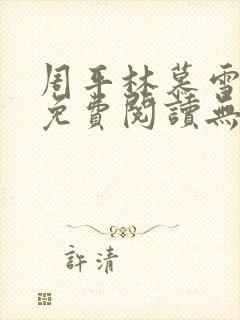 周平林慕雪
免費閱讀無
許清